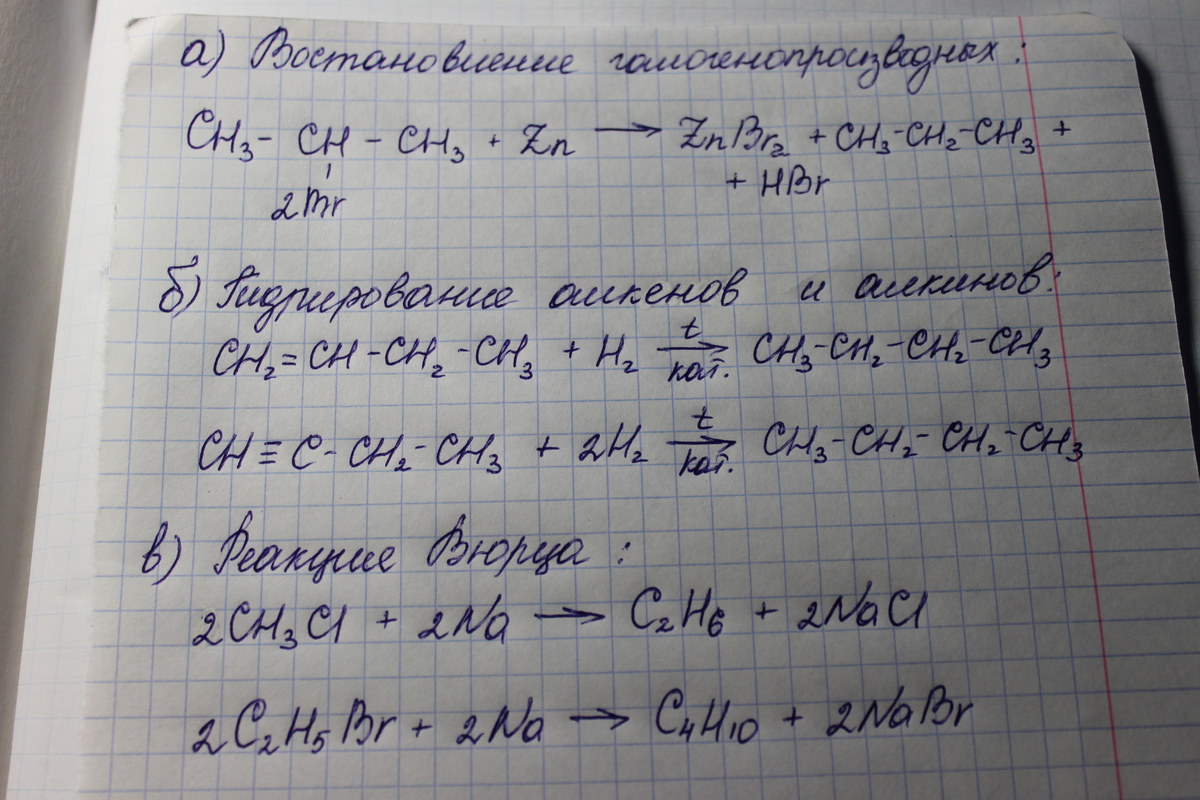 а) Востановление галогенопроизводных:
CH₃ - CH - CH₃ + Zn → ZnBr₂ + CH₃-CH₂-CH₃ +
2Br
+ HBr
б) Гидрирование алкенов и алкинов:
CH₂=CH-CH₂-CH₃ + H₂ t → кат. CH₃-CH₂-CH₂-CH₃
CH≡C-CH₂-CH₃ + 2H₂ t → кат. CH₃-CH₂-CH₂-CH₃
в) Реакция Вюрца:
2CH₃Cl + 2Na → C₂H₆ + 2NaCl
2C₂H₅Br + 2Na → C₄H₁₀ + 2NaBr